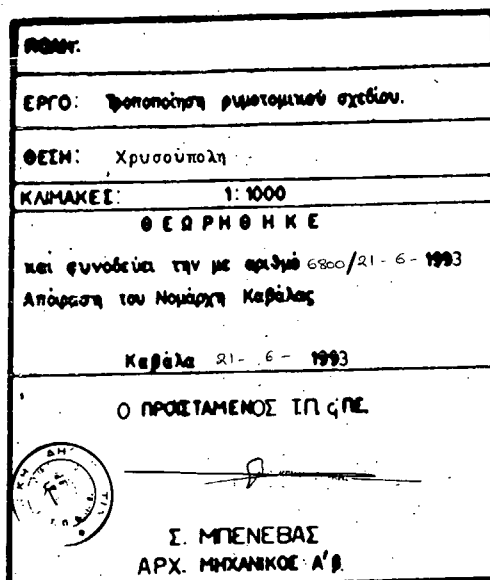 ΕΡΓΟ: Τροποποίηση ρυμοτομικού σχεδίου.
ΘΕΣΗ: Χρυσούπολη
ΚΛΙΜΑΚΕΣ: 1:1000
ΘΕΩΡΗΘΗΚΕ
και συνοδεύει την με αριθμό 6800/21-6-1993
Απόφαση του Νομάρχη Καβάλας
Καβάλα 21-6-1993
Ο ΠΡΟΙΣΤΑΜΕΝΟΣ Τ.Π. ς' ΠΕ.
Σ. ΜΠΕΝΕΒΑΣ
ΑΡΧ. ΜΗΧΑΝΙΚΟΣ Α' β.